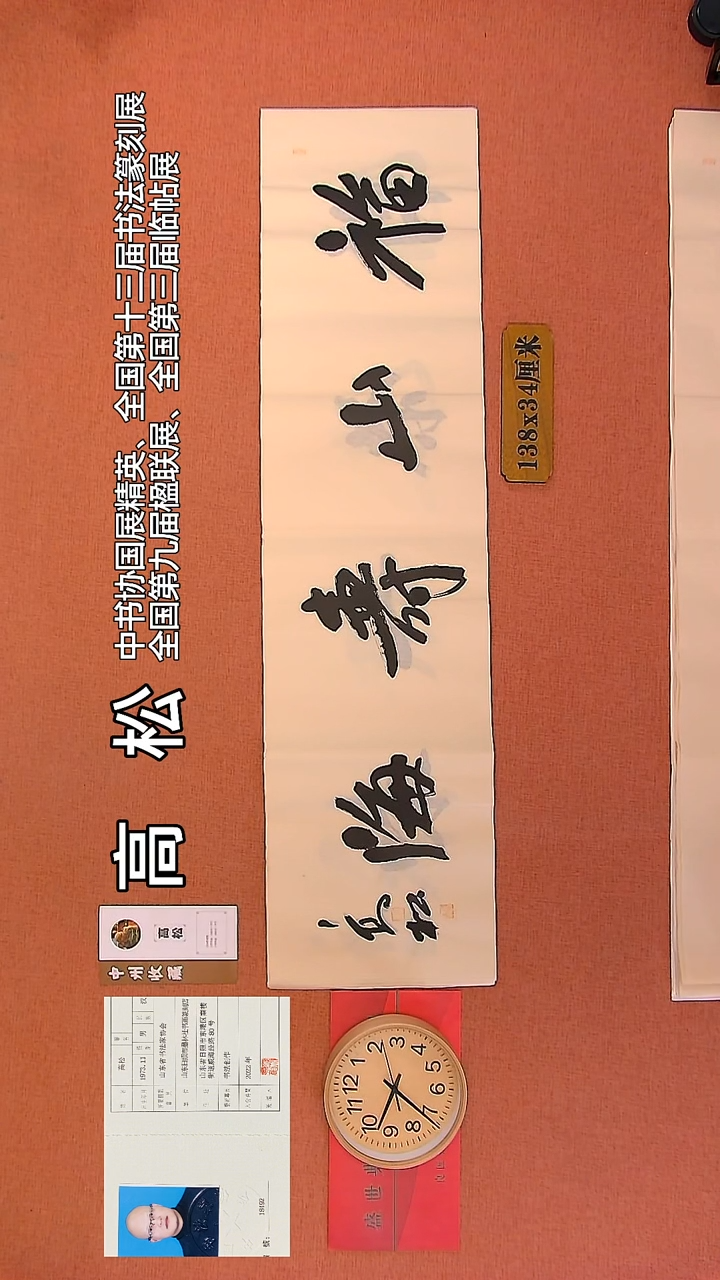 中书协国展精英、全国第十三届书法篆刻展
全国第九届楹联展、全国第三届临帖展
高 松
福山寿海
高松
138x34厘米
高松
中州收藏
高松
1973.11
男
汉
山东省书法家协会
书法创作
2022年
18192
盛世
12
1
2
3
4
5
6
7
8
9
10
11